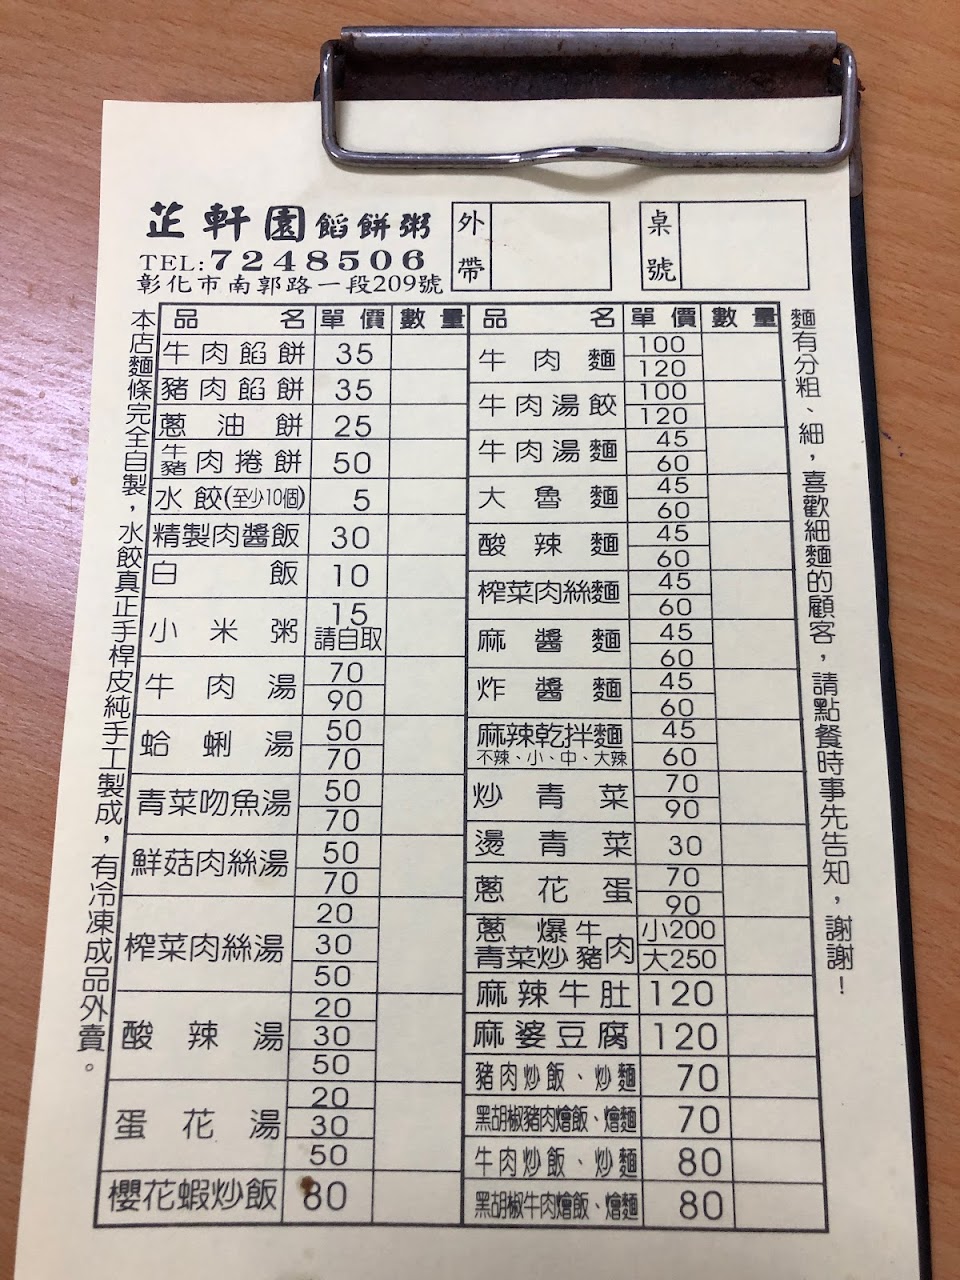 芷軒園餡餅粥
TEL:7248506
彰化市南郭路一段209號
外帶
桌號
本店麵條完全自製，水餃真正手桿皮純手工製成，有冷凍成品外賣。
品名 單價 數量
牛肉餡餅 35
豬肉餡餅 35
蔥油餅 25
牛豬肉捲餅 50
水餃(至少10個) 5
精製肉醬飯 30
白飯 10
小米粥 15 請自取
牛肉湯 70 90
蛤蜊湯 50 70
青菜吻魚湯 50 70
鮮菇肉絲湯 50 70
榨菜肉絲湯 20 30 50
酸辣湯 20 30 50
蛋花湯 20 30 50
櫻花蝦炒飯 80
品名 單價 數量
牛肉麵 100 120
牛肉湯餃 100 120
牛肉湯麵 45 60
大魯麵 45 60
酸辣麵 45 60
榨菜肉絲麵 45 60
麻醬麵 45 60
炸醬麵 45 60
麻辣乾拌麵 45 60
不辣、小、中、大辣
炒青菜 70 90
燙青菜 30
蔥花蛋 70 90
蔥爆牛肉 小200
青菜炒豬肉 大250
麻辣牛肚 120
麻婆豆腐 120
豬肉炒飯、炒麵 70
黑胡椒豬肉燴飯、燴麵 70
牛肉炒飯、炒麵 80
黑胡椒牛肉燴飯、燴麵 80
麵有分粗、細，喜歡細麵的顧客，請點餐時事先告知，謝謝！